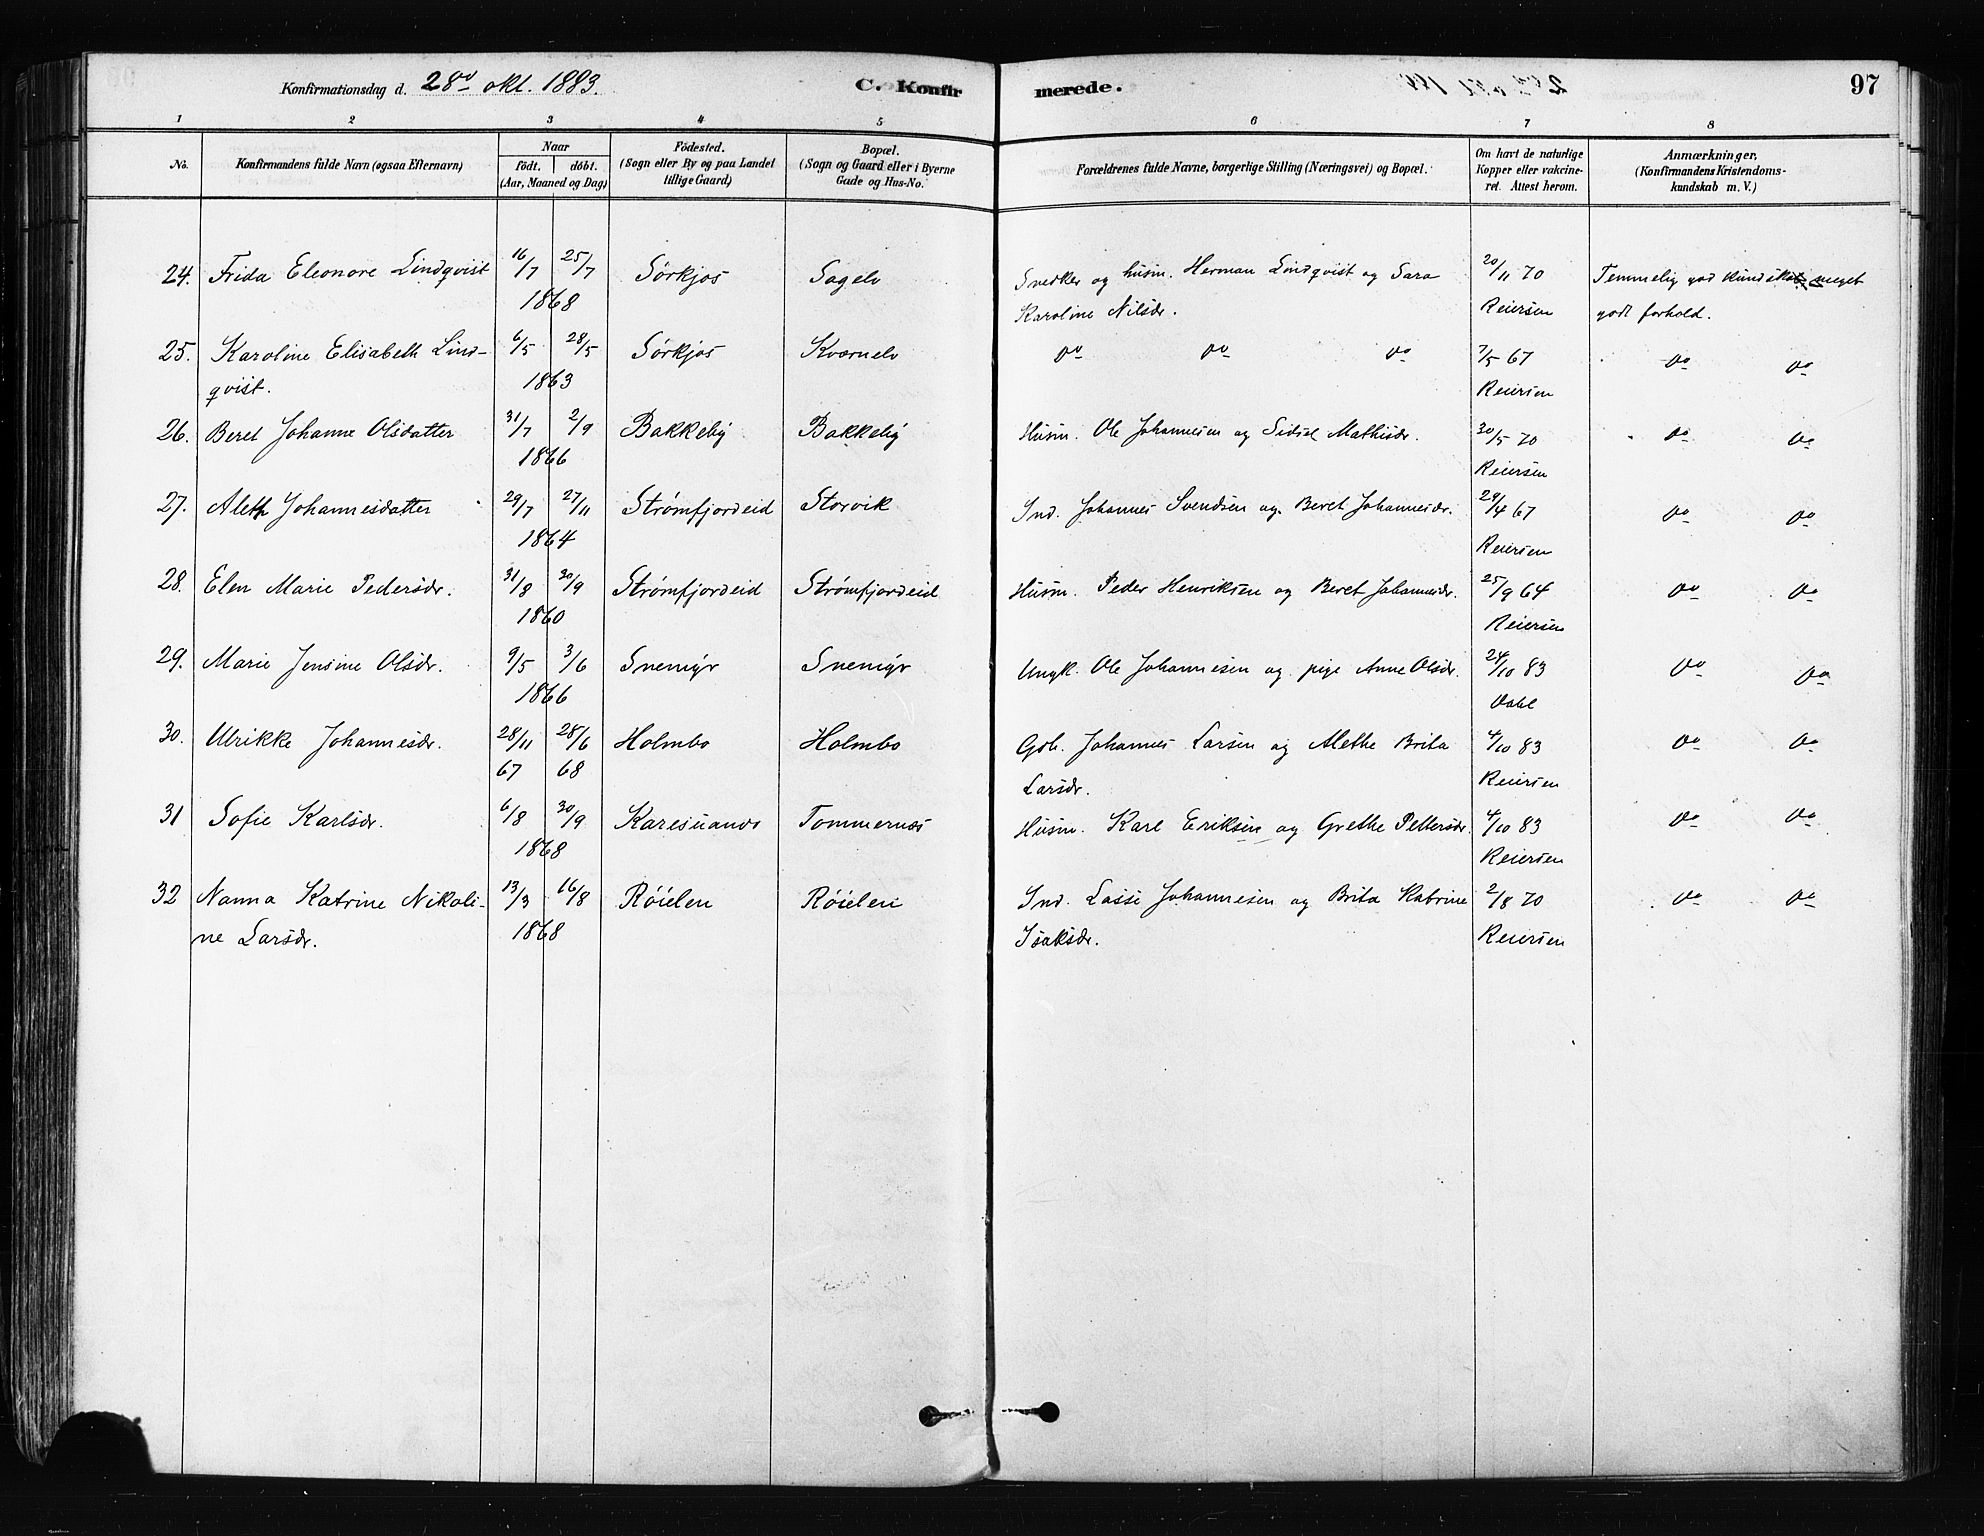 Konfirmationsdag d. 28de okt. 1883. C. Konfirmerede. 97
1 2 3 4 5 6 7 8
No. Konfirmandens fulde Navn (ogsaa Efternavn) Naar født. døbt. (Aar, Maaned og Dag) Fødested. (Sogn eller By og paa Landet tillige Gaard) Bopæl. (Sogn og Gaard eller i Byerne Gade og Hus-No. Forældrenes fulde Navne, borgerlige Stilling (Næringsvei) og Bopæl. Om havt de naturlige Kopper eller vakcineret. Attest herom. Anmærkninger, (Konfirmandens Kristendomskundskab m. V.)
24. Frida Eleonore Lindqvist 16/7 25/7 Sörkjos Sagelv Snedker og husm. Herman Lindqvist og Sara 20/11 70 Temmelig god kundskab, meget
1868 Karoline Nilsdr. Reiersen godt forhold.
25. Karoline Elisabeth Lind- 6/5 28/5 Sörkjos Kværnelv do do do 7/5 67 do do
qvist. 1863 Reiersen
26. Beret Johanne Olsdatter 31/7 2/9 Bakkeby Bakkeby Husm. Ole Johannesen og Sidsel Mathisdr. 30/5 70 do do
1866 Reiersen
27. Aleth Johannesdatter 29/7 27/11 Strømfjordeid Storvik Ind. Johannes Svendsen og Beret Johannesdr. 29/4 67 do do
1864 Reiersen
28. Elen Marie Pedersdr. 31/8 30/9 Strømfjordeid Strømfjordeid Husm. Peder Henriksen og Beret Johannesdr. 25/9 64 do do
1860 Reiersen
29. Marie Jensine Olsdr. 9/5 3/6 Snemyr Snemyr Ungk. Ole Johannesen og pige Anne Olsdr. 24/10 83 do do
1866 Dahl
30. Ulrikke Johannesdr. 28/11 28/6 Holmbo Holmbo Gbr. Johannes Larsen og Alethe Brita 4/10 83 do do
67 68 Larsdr. Reiersen
31 Sofie Karlsdr. 6/8 30/9 Karesuando Tommernæs Husm. Karl Eriksen og Grethe Pettersdr. 4/10 83 do do
1868 Reiersen
32 Nanna Katrine Nikoli- 13/3 16/8 Röielen Röielen Ind. Lasse Johannesen og Brita Katrine 2/8 70 do do
ne Larsdr. 1868 Isaksdr. Reiersen